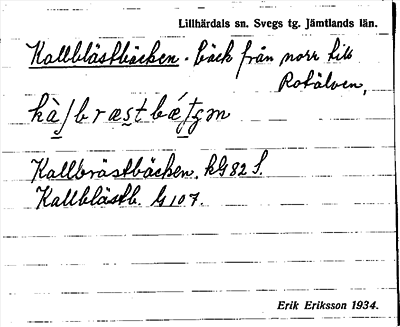 Lillhärdals sn. Svegs tg. Jämtlands län.
Kallblästbäcken. bäck från norr till
Rotälven,
Kallbrästbäcken. kG 82 S.
Kallblästb. G 107.
Erik Eriksson 1934.